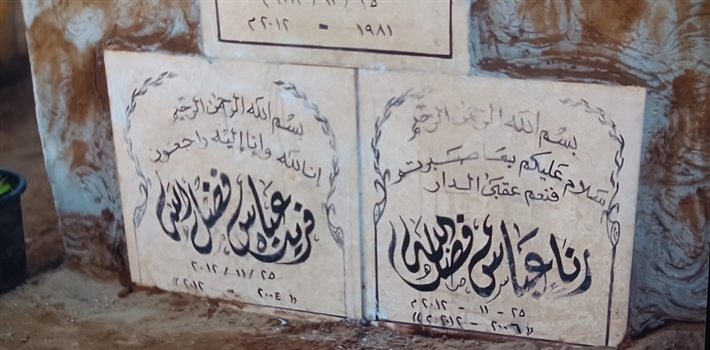 ١٩٨١ - ٢٠١٢ م
بسم الله الرحمن الرحيم
سلام عليكم بما صبرتم
فنعم عقبى الدار
رنا عباس فضل الله
٢٥ - ١١ - ٢٠١٢ م
« ٢٠٠٦ - ٢٠١٢ م »
بسم الله الرحمن الرحيم
إنا لله وإنا إليه راجعون
عباس فضل الله
٢٥ / ١١ / ٢٠١٢
« ٢٠٠٤ - ٢٠١٢